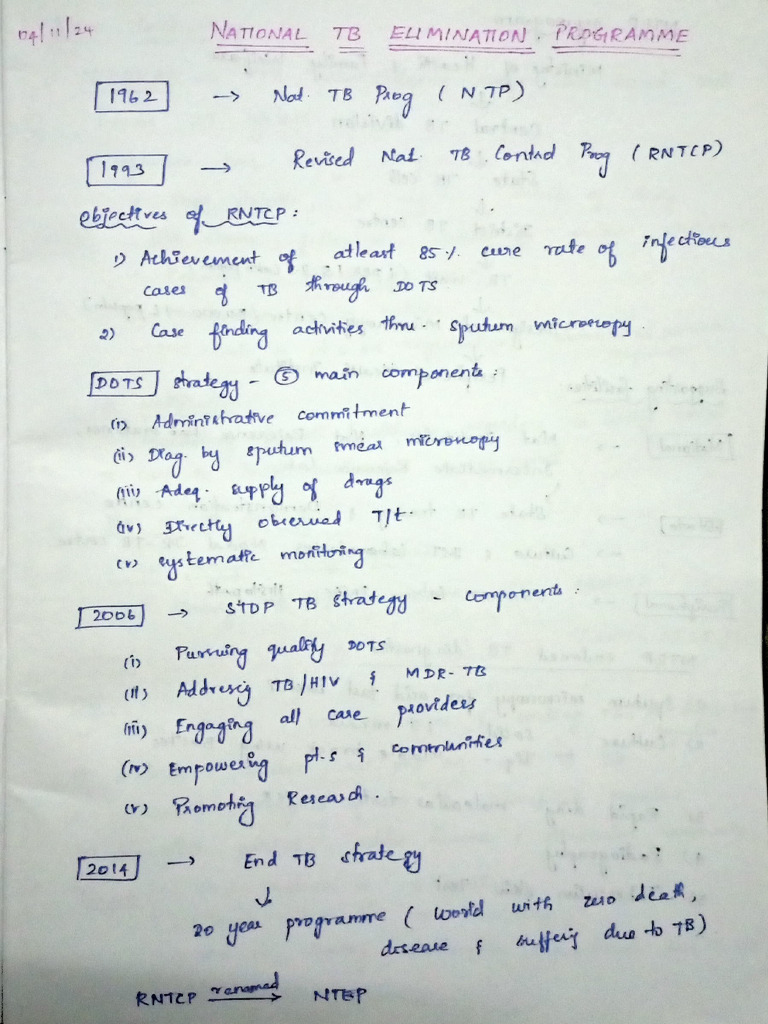 04/11/24 NATIONAL TB ELIMINATION PROGRAMME
1962 → Nat. TB Prog (NTP)
1993 → Revised Nat. TB Control Prog (RNTCP)
Objectives of RNTCP:
1) Achievement of atleast 85% cure rate of infectious
cases of TB through DOTS
2) Case finding activities thru. sputum microscopy.
DOTS strategy - ⑤ main components:
(i) Administrative commitment
(ii) Diag. by sputum smear microscopy
(iii) Adeq. supply of drugs
(iv) Directly observed T/t.
(v) systematic monitoring
2006 → STOP TB Strategy - components:
(i) Pursuing quality DOTS
(ii) Addressig TB/HIV & MDR-TB
(iii) Engaging all care providers
(iv) Empowering pt-s & communities
(v) Promoting Research.
2014 → End TB strategy
↓
20 year programme (World with zero death,
disease & sufferig due to TB)
RNTCP renamed → NTEP